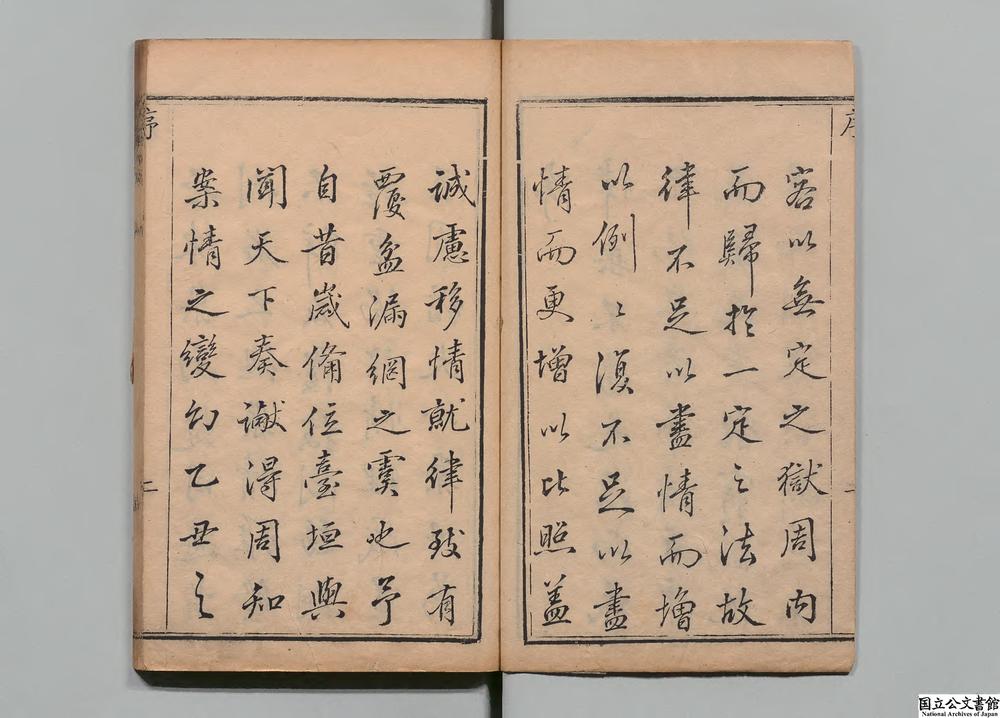 序
一
客以無定之獄周內
而歸於一定之法故
律不足以盡情而增
以例〻復不足以盡
情而更增以比照盖
誠慮移情就律致有
覆盆漏網之虞也予
自昔歲備位臺垣與
聞天下奏讞得周知
案情之變幻乙丑之
序
二
国立公文書館
National Archives of Japan